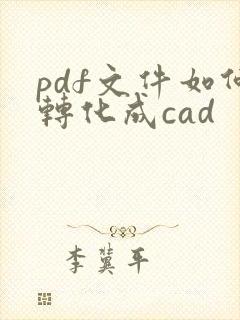 pdf文件如何
轉化成cad
李冀平